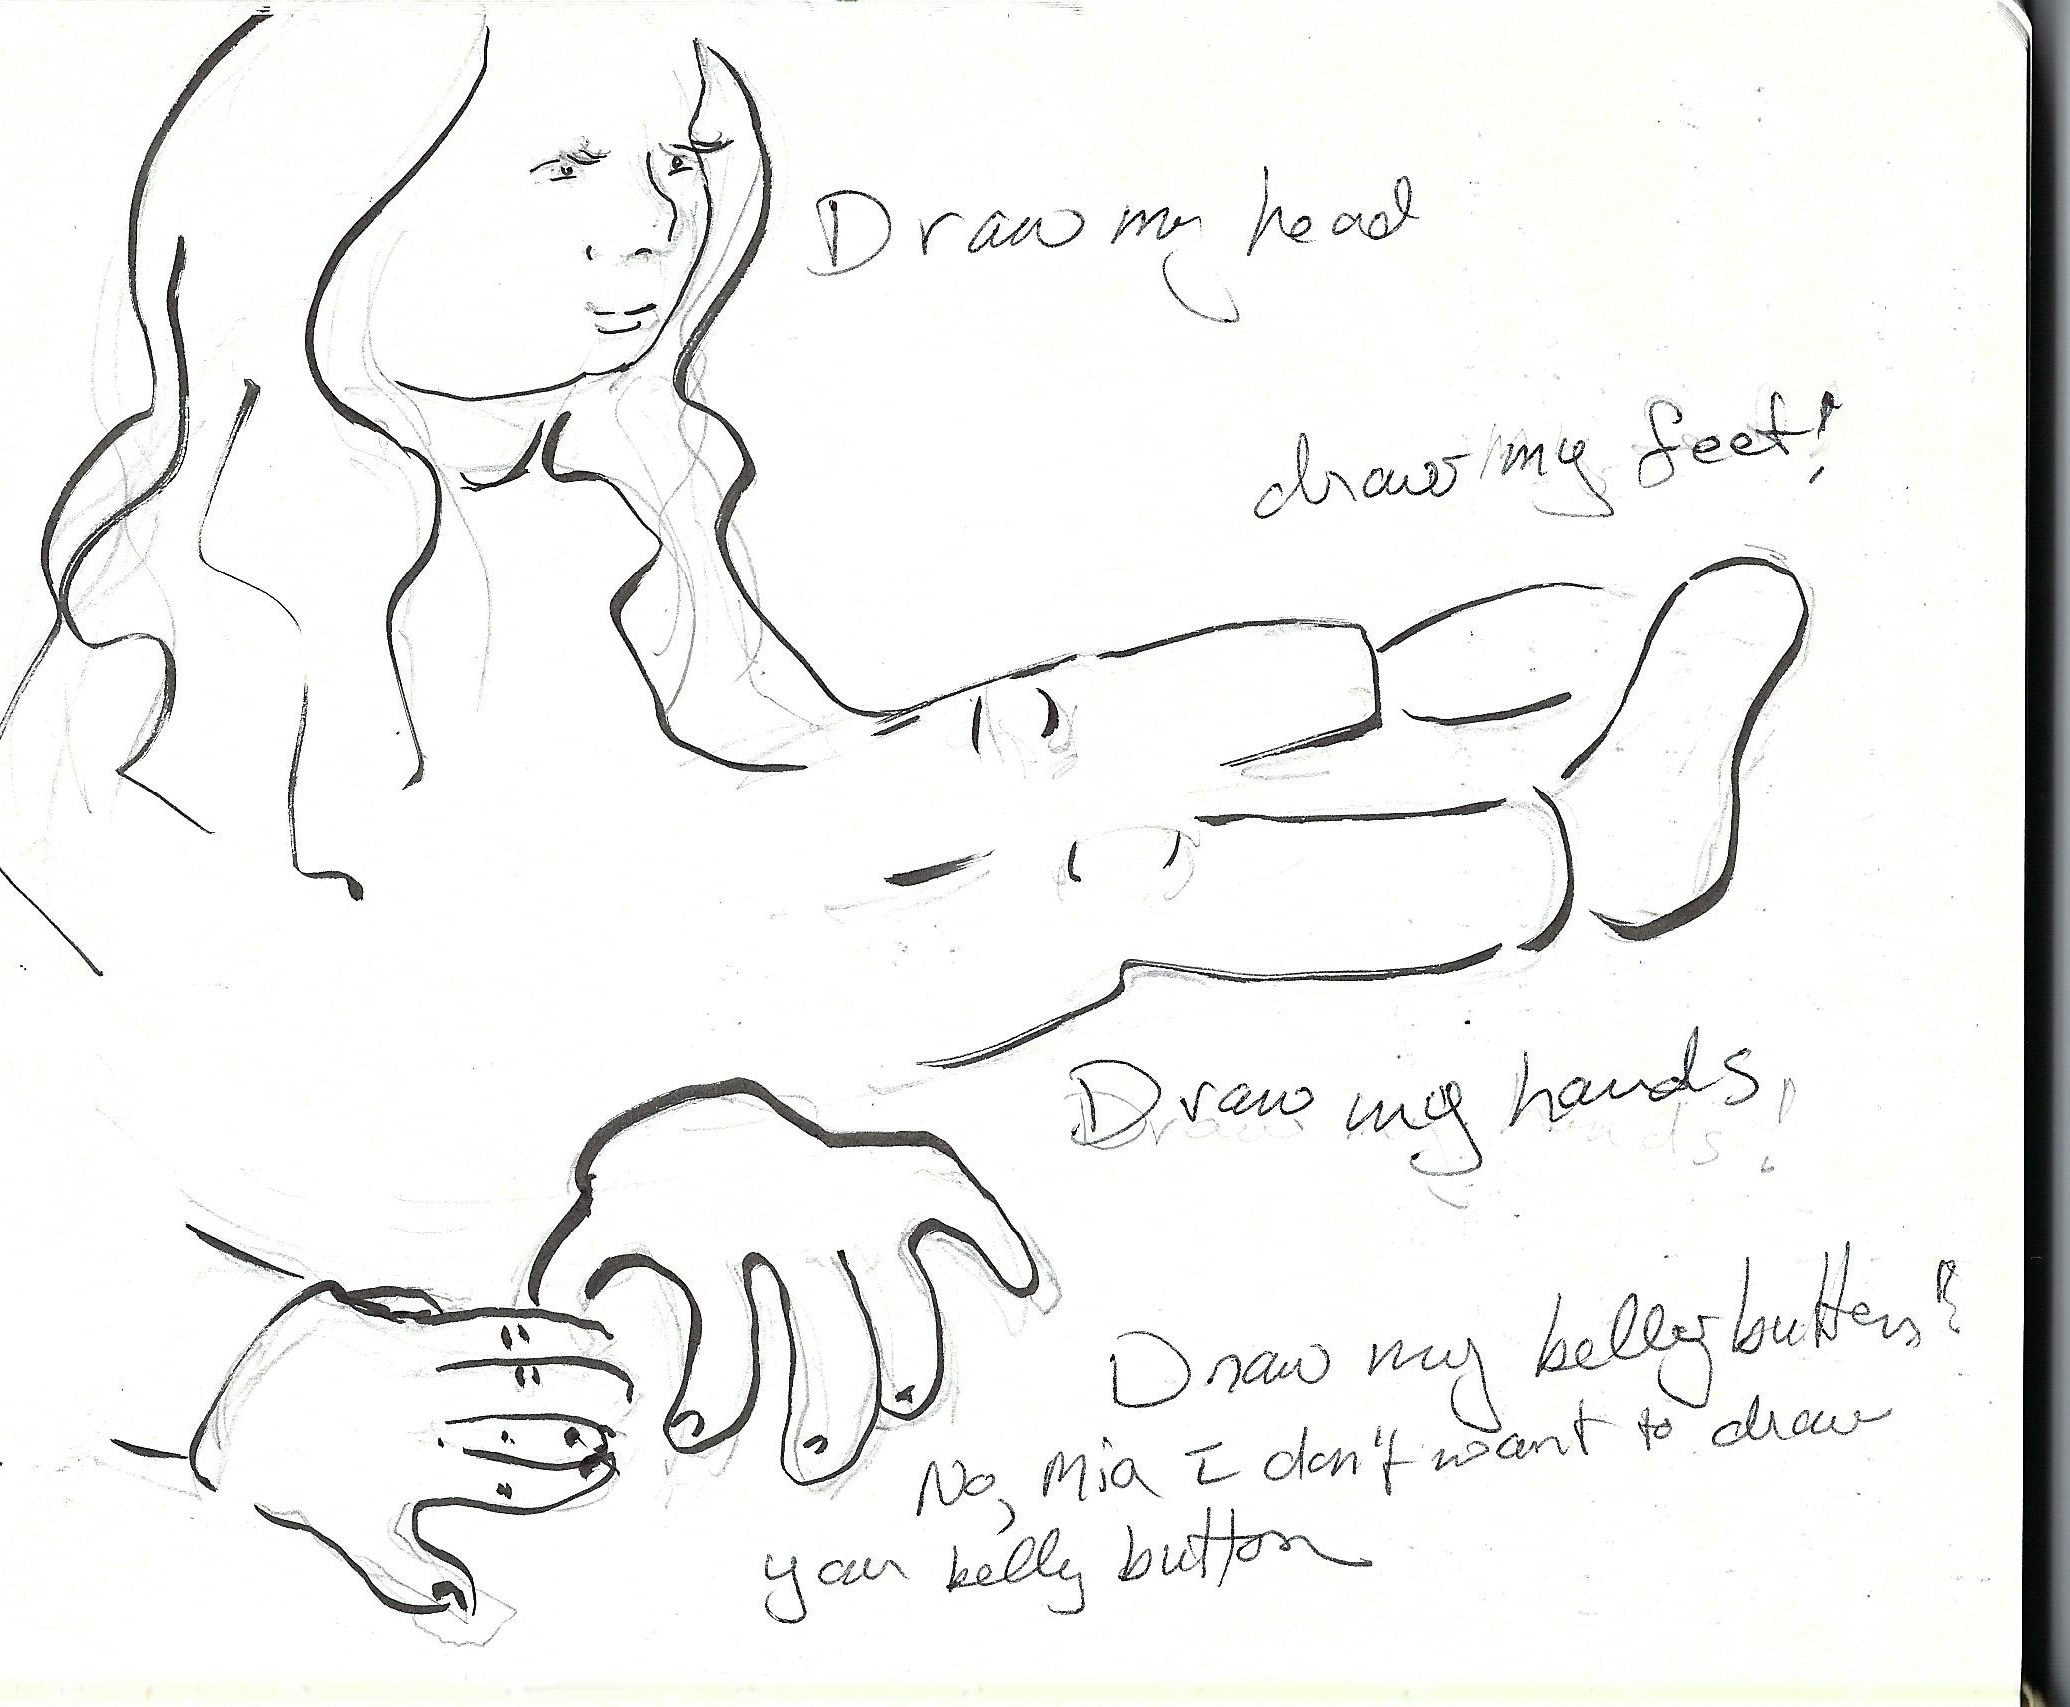 Draw my head
draw my feet!
Draw my hands!
Draw my belly button?
No, Mia I don't want to draw
your belly button